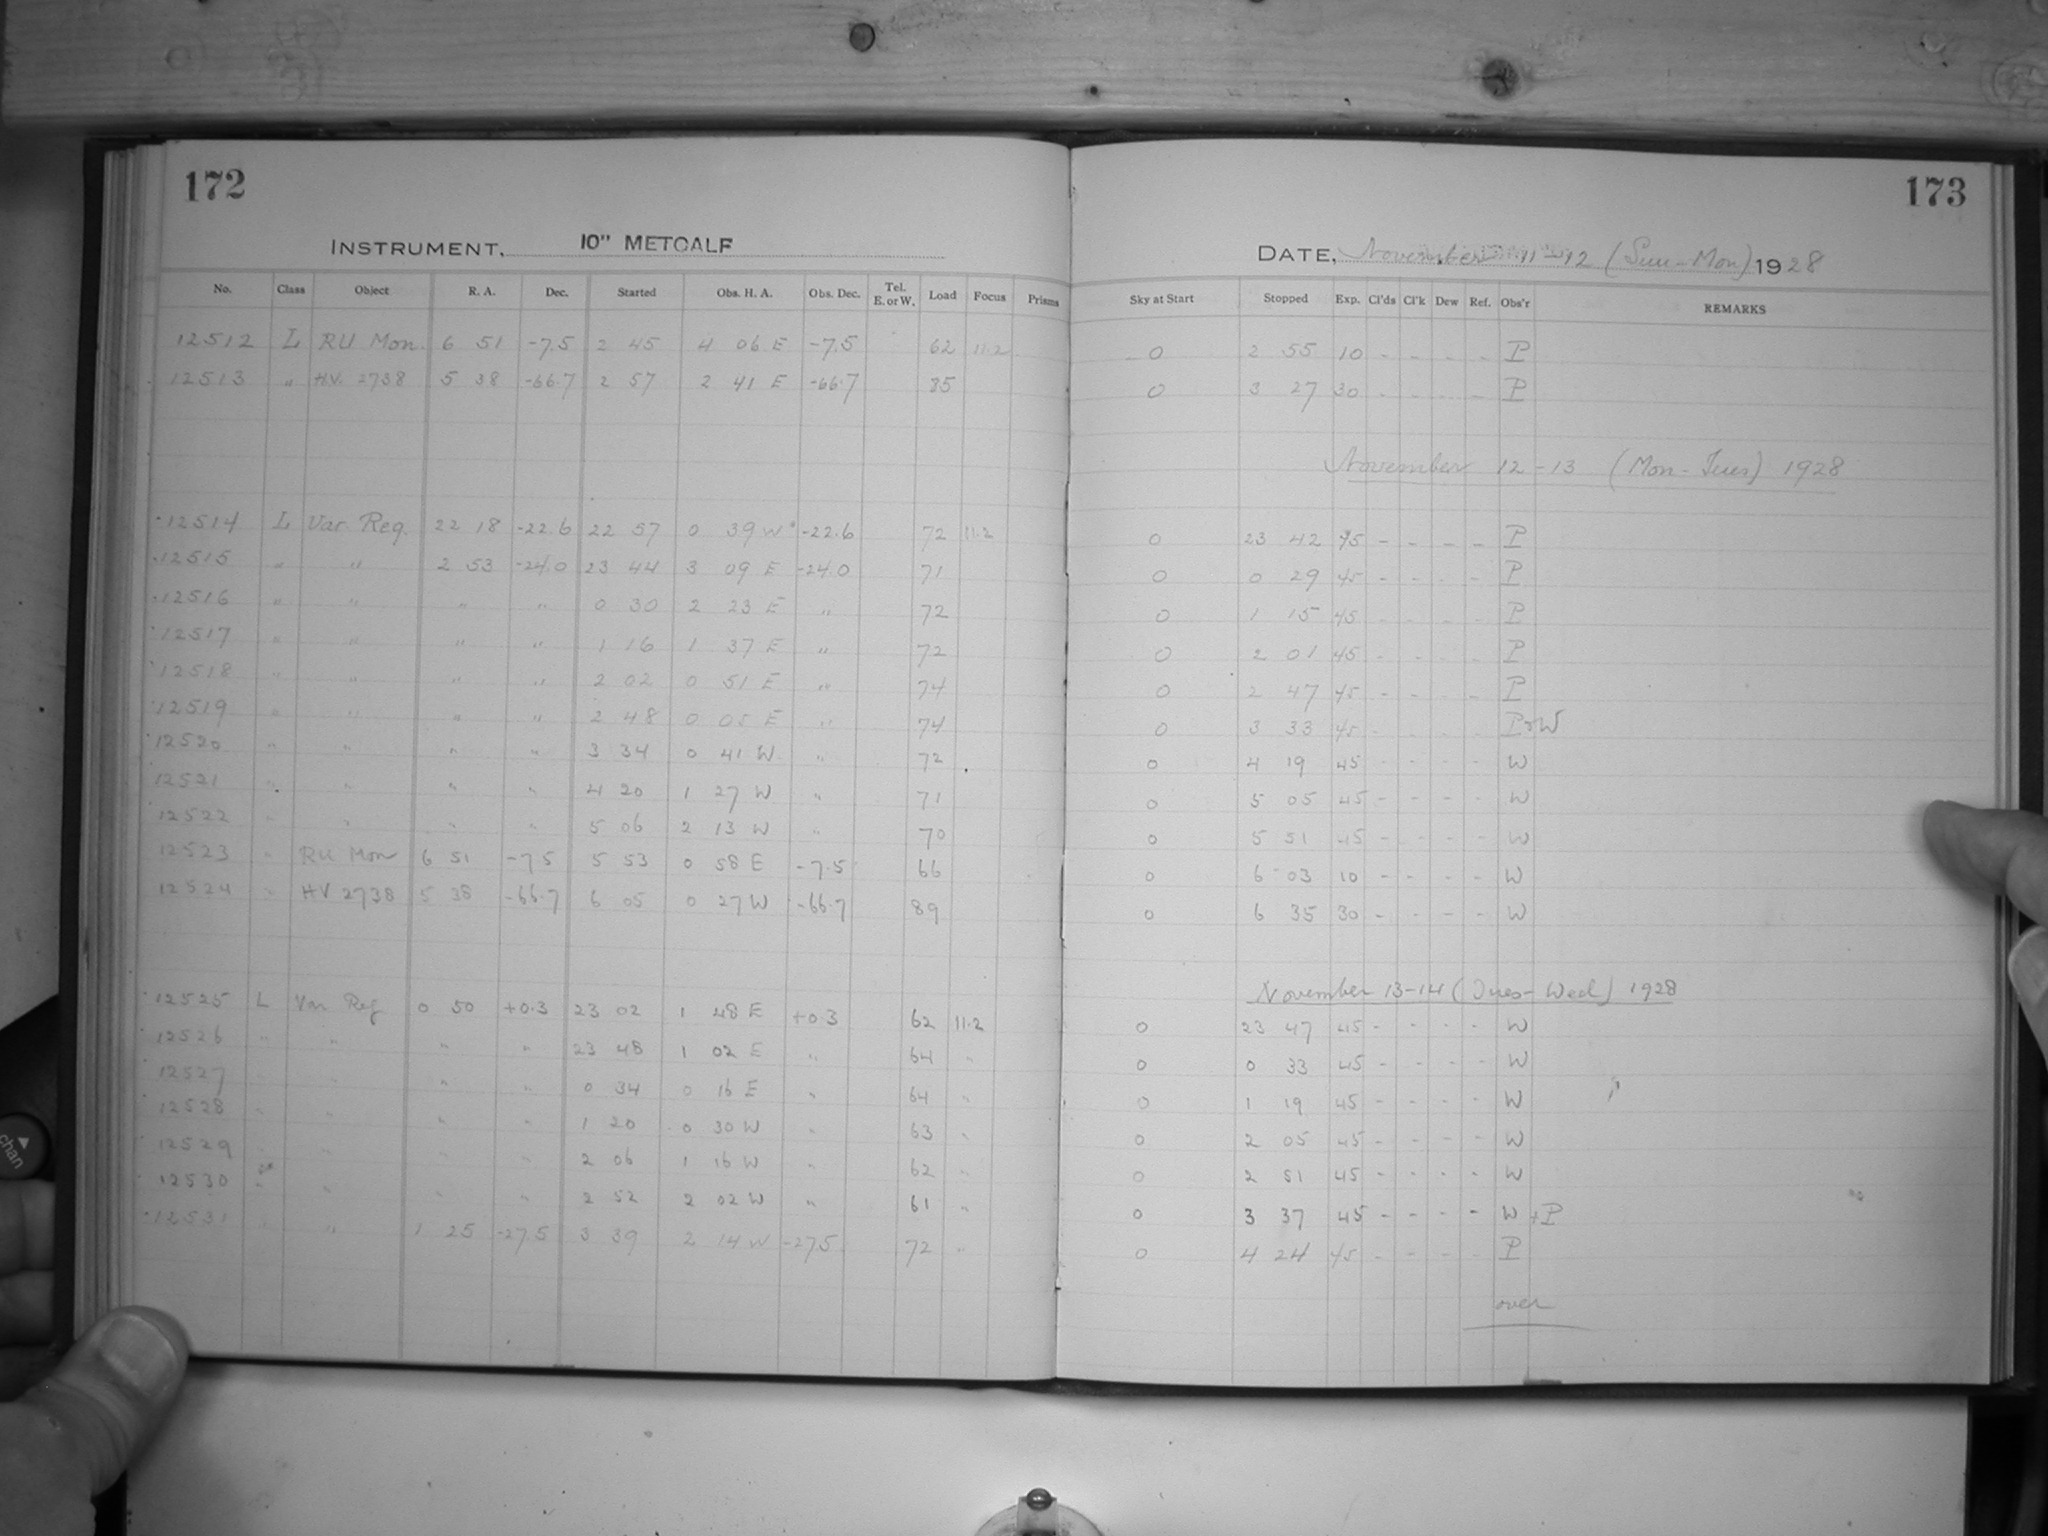 172
INSTRUMENT, 10" METCALF
No. Class Object R. A. Dec. Started Obs. H. A. Obs. Dec. Tel. E. or W. Load Focus Prisms
12512 L RU Mon. 6 51 -7.5 2 45 4 06 E -7.5 62 11.2
12513 " H.V. 2738 5 38 -66.7 2 57 2 41 E -66.7 85
12514 L Var. Reg. 22 18 -22.6 22 57 0 39 W -22.6 72 11.2
12515 " " 2 53 -24.0 23 44 3 09 E -24.0 71
12516 " " " " 0 30 2 23 E " 72
12517 " " " " 1 16 1 37 E " 72
12518 " " " " 2 02 0 51 E " 74
12519 " " " " 2 48 0 05 E " 74
12520 " " " " 3 34 0 41 W " 72
12521 " " " " 4 20 1 27 W " 71
12522 " " " " 5 06 2 13 W " 70
12523 " RU Mon 6 51 -7.5 5 53 0 58 E -7.5 66
12524 " HV 2738 5 38 -66.7 6 05 0 27 W -66.7 89
12525 L Var Reg 0 50 +0.3 23 02 1 48 E +0.3 62 11.2
12526 " " " " 23 48 1 02 E " 64 "
12527 " " " " 0 34 0 16 E " 64 "
12528 " " " " 1 20 0 30 W " 63 "
12529 " " " " 2 06 1 16 W " 62 "
12530 " " " " 2 52 2 02 W " 61 "
12531 " " 1 25 -27.5 3 39 2 14 W -27.5 72 "
173
DATE, November 11-12 (Sun-Mon) 1928
Sky at Start Stopped Exp. Cl'ds Cl'k Dew Ref. Obs'r REMARKS
0 2 55 10 - - - - P
0 3 27 30 - - - - P
November 12-13 (Mon-Tues) 1928
0 23 42 45 - - - - P
0 0 29 45 - - - - P
0 1 15 45 - - - - P
0 2 01 45 - - - - P
0 2 47 45 - - - - P
0 3 33 45 - - - - P+W
0 4 19 45 - - - - W
0 5 05 45 - - - - W
0 5 51 45 - - - - W
0 6 03 10 - - - - W
0 6 35 30 - - - - W
November 13-14 (Tues-Wed) 1928
0 23 47 45 - - - - W
0 0 33 45 - - - - W
0 1 19 45 - - - - W
0 2 05 45 - - - - W
0 2 51 45 - - - - W
0 3 37 45 - - - - W+P
0 4 24 45 - - - - P
over